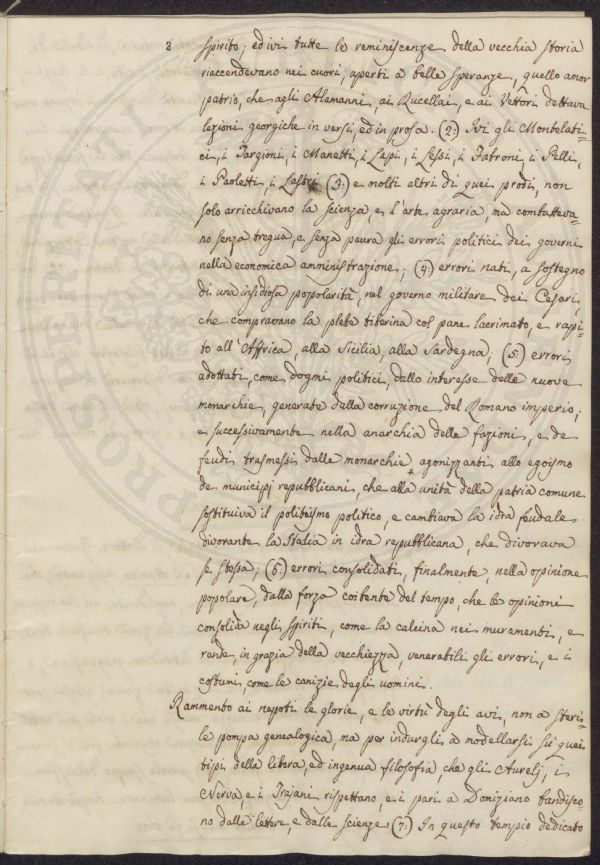 2
spirito; ed ivi tutte le reminiscenze della vecchia storia
riaccendevano nei cuori, aperti a belle speranze, quello amor
patrio, che agli Alamanni, ai Rucellai, e ai Vettori dettava
lezioni georgiche in versi, ed in prosa. (2:) Ivi gli Montelati=
ci, i Targioni, i Manetti, i Lapi, i Sessi, i Tatroni, i Pelli,
i Paoletti, i Lastri (3:) e molti altri di quei prodi, non
solo arricchivano la scienza, e l'arte agraria, ma combatteva=
no senza tregua, e senza paura gli errori politici dei governi
nella economica amministrazione; (4:) errori nati, a sostegno
di una insidiosa popolarità, nel governo militare dei Cesari,
che compravano la plebe tiberina col pane lacrimato, e rapi=
to all'Affrica, alla Sicilia, alla Sardegna; (5:) errori
adottati, come dogmi politici, dallo interesse delle nuove
monarchie, generate dalla corruzione del Romano imperio;
e successivamente nella anarchia delle fazioni, e de
feudi trasmessi dalle monarchie agonizzanti allo egoismo
de municipj repubblicani, che alla unità della patria comune
sostituiva il politeismo politico, e cambiava la idra feudale
divorante la Italia in idra repubblicana, che divorava
se stessa; (6:) errori consolidati, finalmente, nella opinione
popolare, dalla forza coibente del tempo, che le opinioni
consolida negli spiriti, come la calcina nei muramenti, e
rende, in grazia della vecchiezza, venerabili gli errori, e i
costumi, come le canizie degli uomini.
Rammento ai nepoti le glorie, e le virtù degli avi, non a steri=
le pompa genealogica, ma per indurgli a modellarsi su quei
tipi della libera, ed ingenua filosofia, che gli Aurelj, i
Nerva, e i Trajani rispettano, e i pari a Domiziano bandisco=
no dalle lettere, e dalle scienze (7:) In questo tempio dedicato
PROSPERITATI